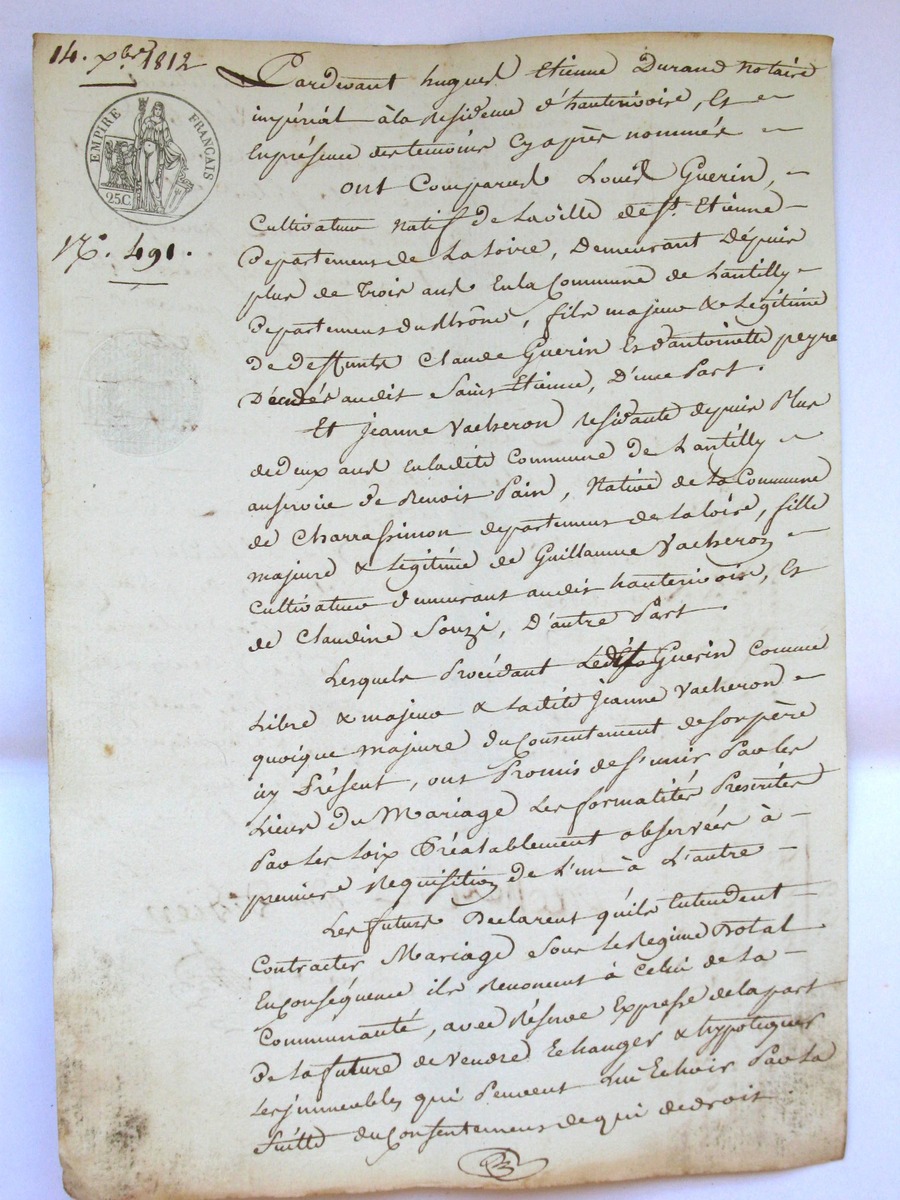 14. xbre 1812
EMPIRE FRANÇAIS
25C.
N°. 491.
Pardevant hugues Etienne Durand Notaire
impérial à la Residence d'hauterivoire, Et
En présence des temoins Cy après nommés
ont Comparus Louis Guerin,
Cultivateur Natif de La ville de St. Etienne
Departement de La Loire, Demeurant Dépuis
plus de Trois ans En La Commune de Lantilly
Departement du Rhône, fils majeur & Légitime
De deffunts Claude Guerin Et d'antoinette peyre
Décédés audit Saint Etienne, D'une Part.
Et Jeanne Vacheron residante depuis Plus
de deux ans En ladite Commune de Lantilly
au service de Benoit Pain, Native de La Commune
de Charrassimon departement de La Loire, fille
majeure & Légitime de Guillaume Vacheron
Cultivateur demeurant audit hauterivoire, Et
de Claudine Souzi, D'autre Part.
Lesquels Procédant Ledit Guerin Comme
Libre & majeur & Ladite Jeanne Vacheron
quoique majeure du Consentement de son père
icy Présent, ont Promis de s'unir Par les
Liens du Mariage Les formalités Prescrites
Par Les Loix Préalablement observées à
première Requisition de L'un à L'autre
Les futurs Declarent qu'ils Entendent
Contracter Mariage Sous Le Regime Dotal
En Conséquence ils Renoncent à Celui de La
Communauté, avec Réserve Expresse de la part
de La future de Vendre Echanger & hypotéquer
Les immeubles qui Peuvent Lui Echoir Par La
Suitte du Consentement de qui de droit